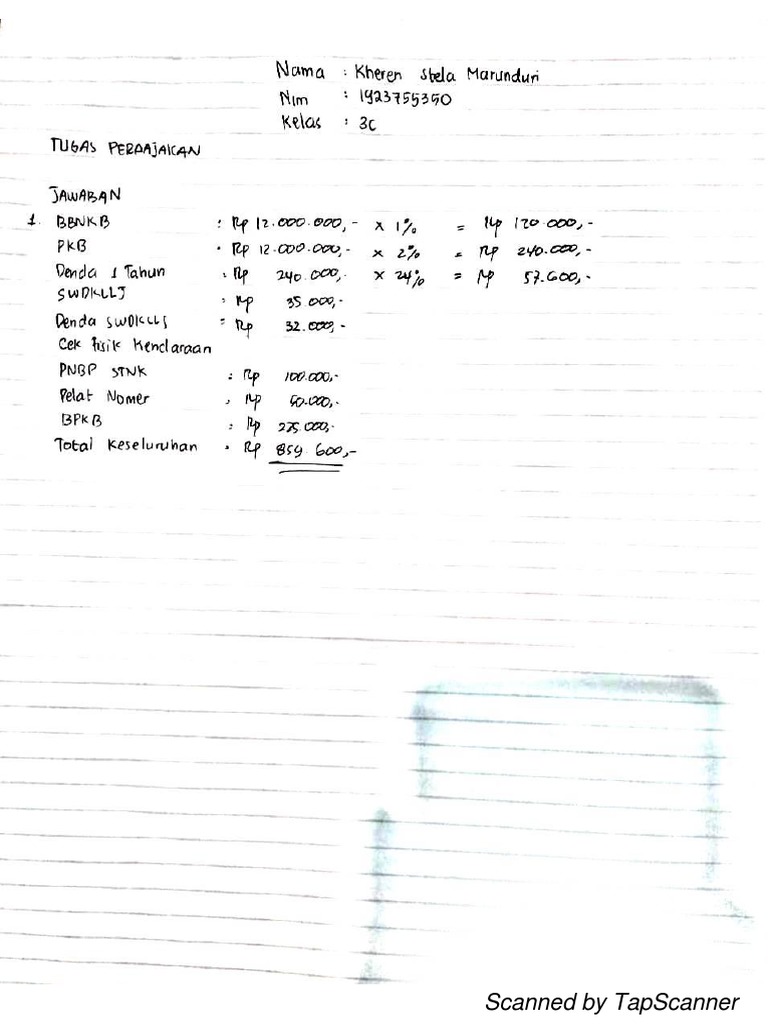 Nama : Kheren Stela Marunduri
Nim : 1923755350
Kelas : 3C
TUGAS PERPAJAKAN
JAWABAN
1. BBNKB : Rp 12.000.000,- x 1% = Rp 120.000,-
PKB : Rp 12.000.000,- x 2% = Rp 240.000,-
Denda 1 Tahun : Rp 240.000,- x 24% = Rp 57.600,-
SWDKLLJ : Rp 35.000,-
Denda SWDKLLJ = Rp 32.000,-
Cek fisik Kendaraan
PNBP STNK : Rp 100.000,-
Pelat Nomer : Rp 50.000,-
BPKB : Rp 225.000,-
Total Keseluruhan : Rp 859.600,-
Scanned by TapScanner